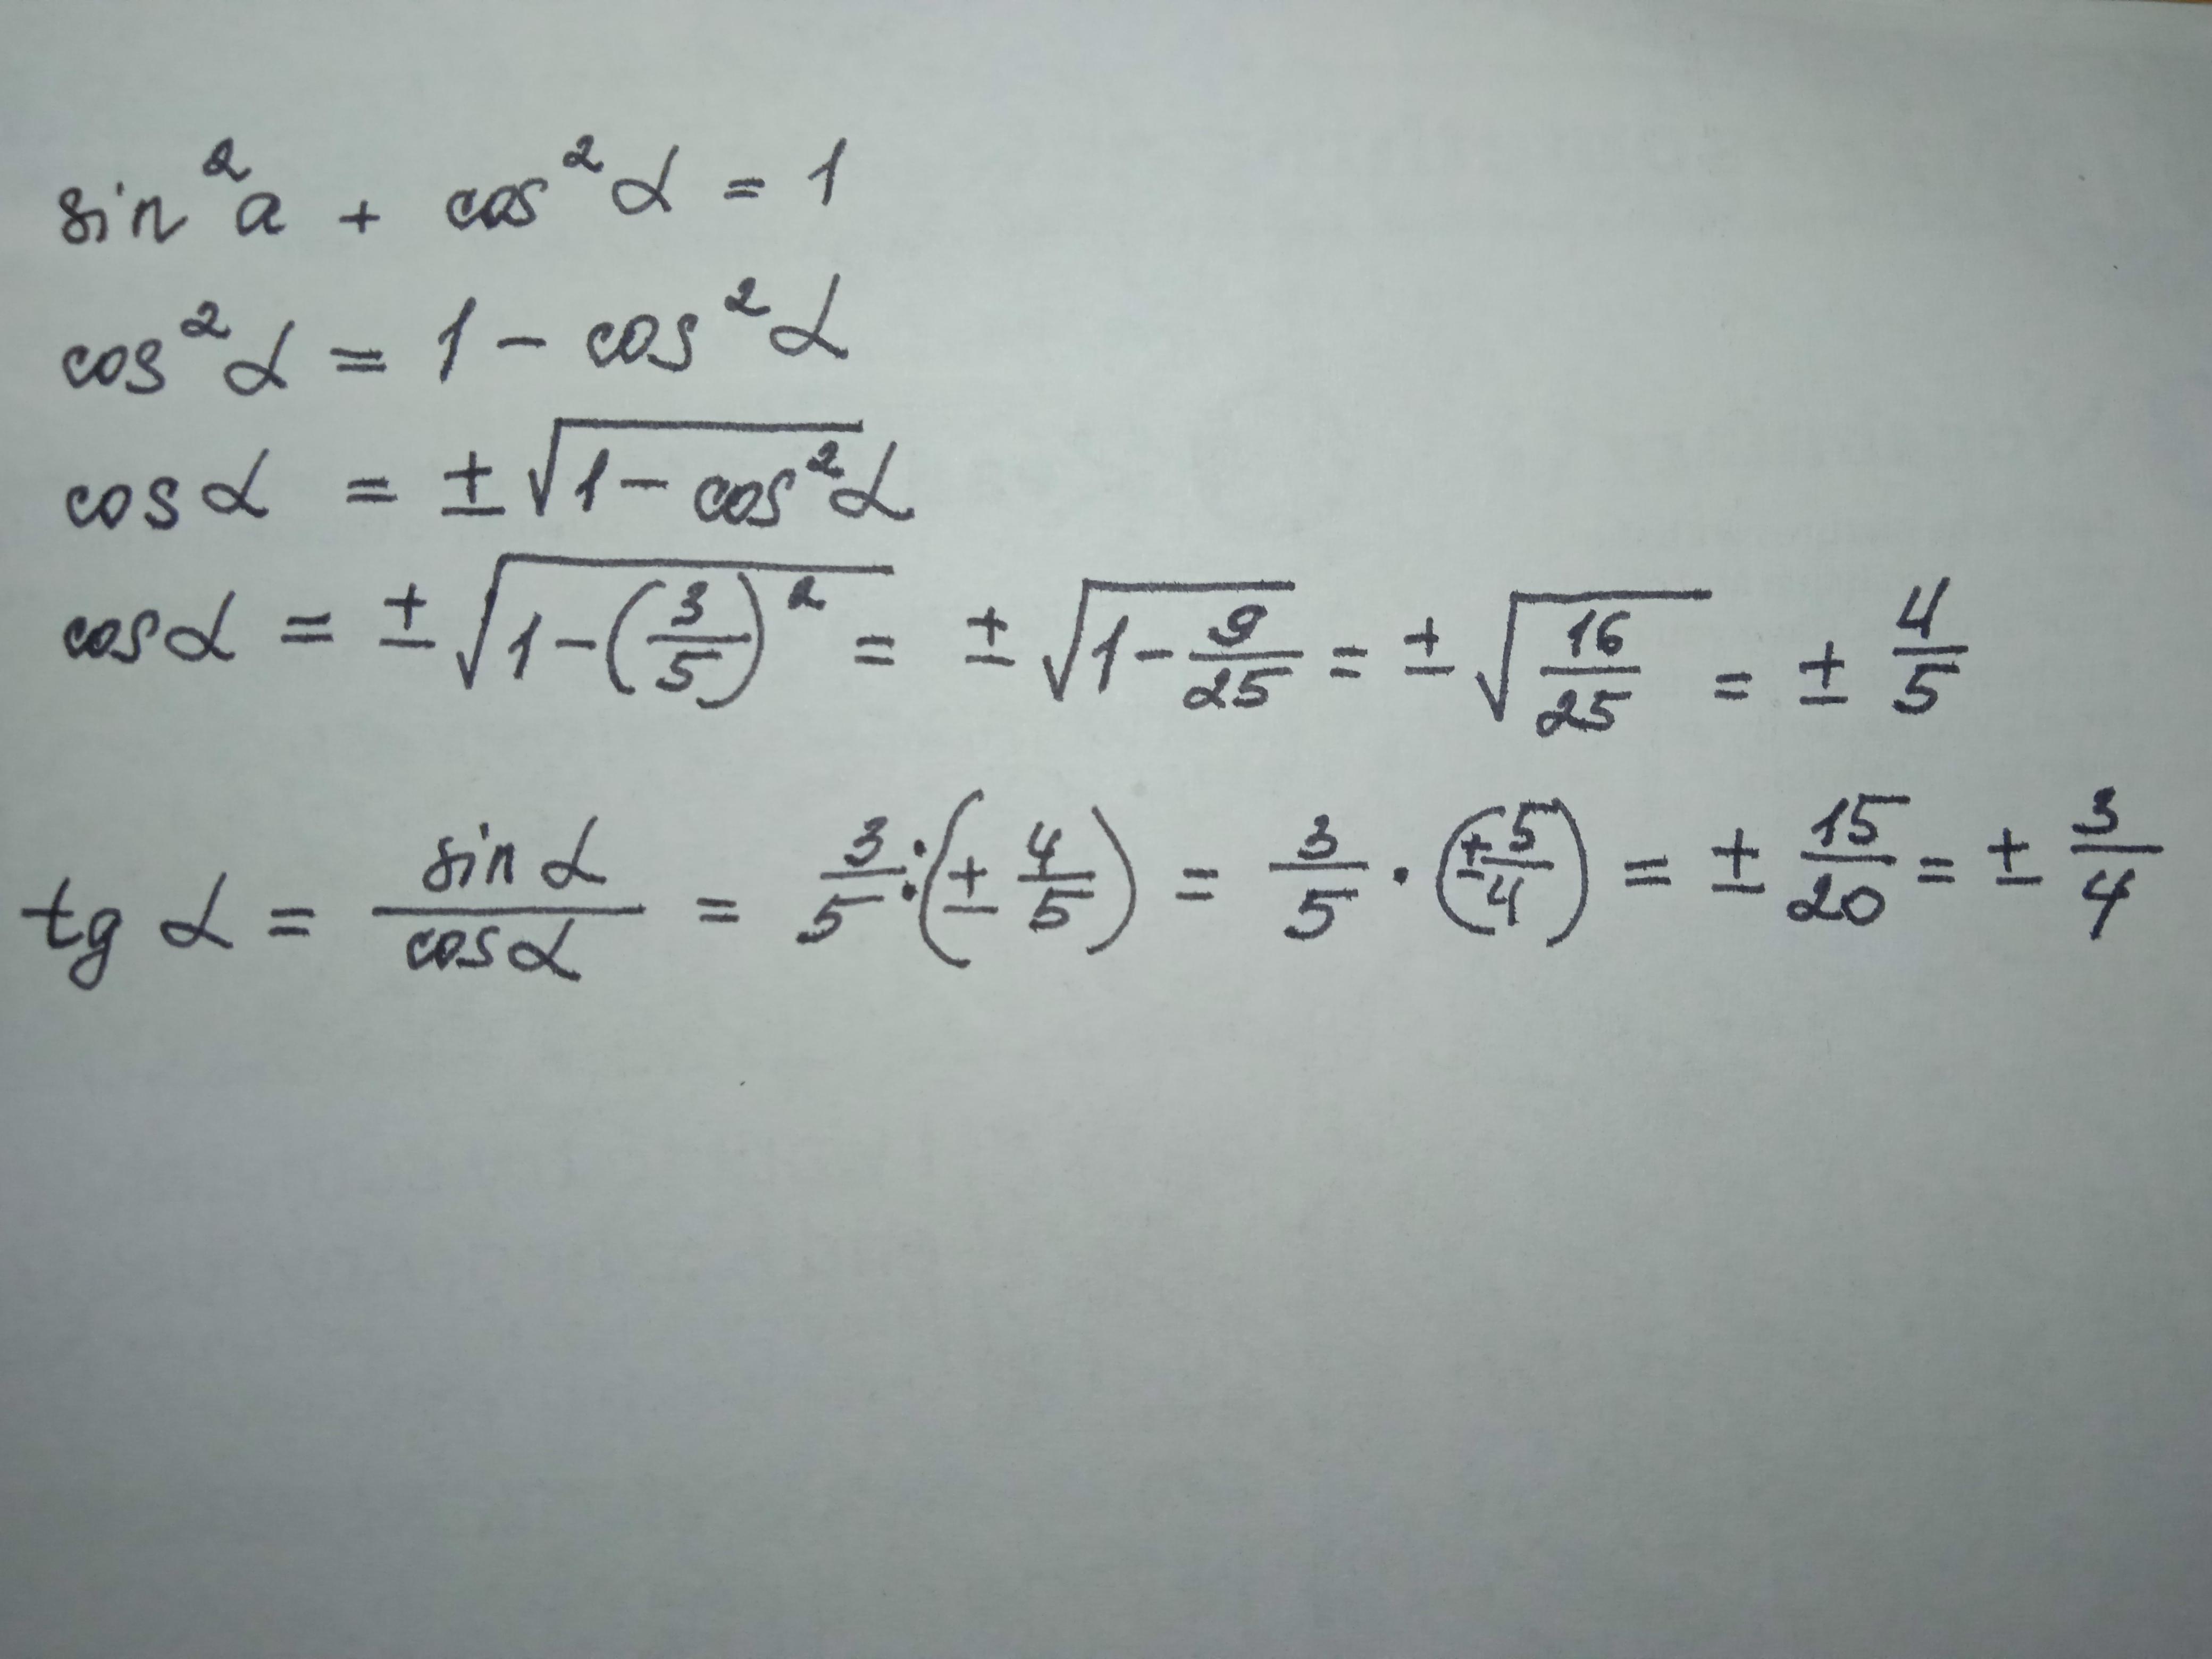 sin²a + cos²α = 1
cos²α = 1 - cos²α
cos α = ± √(1 - cos²α)
cos α = ± √(1 - (3/5)²) = ± √(1 - 9/25) = ± √(16/25) = ± 4/5
tg α = sin α / cos α = 3/5 : (± 4/5) = 3/5 · (± 5/4) = ± 15/20 = ± 3/4